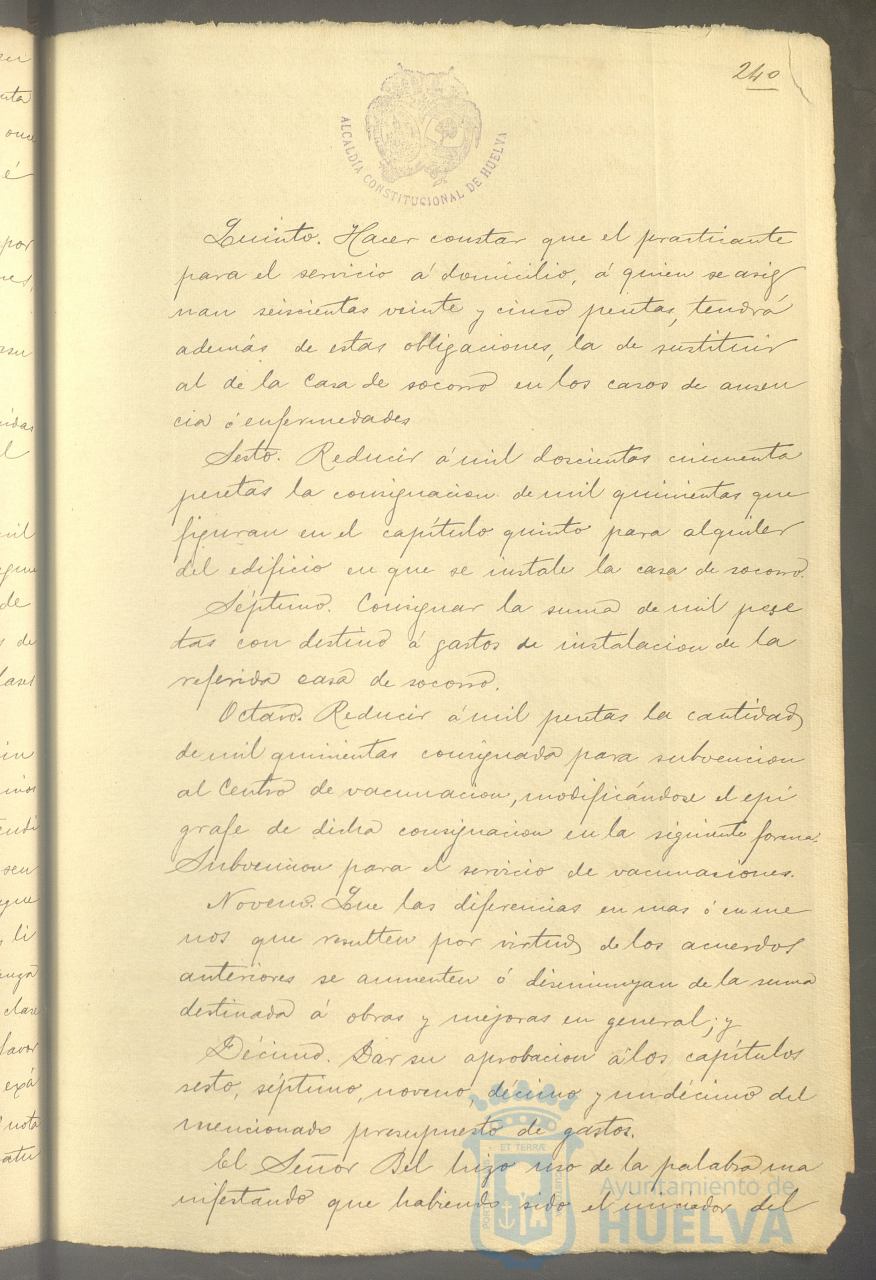 240
ALCALDÍA CONSTITUCIONAL DE HUELVA
Quinto. Hacer constar que el practicante
para el servicio á domicilio, á quien se asig
nan seiscientas veinte y cinco pesetas, tendrá
además de estas obligaciones, la de sustituir
al de la Casa de socorro en los casos de ausen
cia ó enfermedades
Sesto. Reducir á mil doscientas cincuenta
pesetas la consignacion de mil quinientas que
figuran en el capítulo quinto para alquiler
del edificio en que se instale la casa de socorro.
Séptimo. Consignar la suma de mil pese
tas con destino á gastos de instalacion de la
referida casa de socorro.
Octavo. Reducir á mil pesetas la cantidad
de mil quinientas consignada para subvencion
al Centro de vacunacion, modificándose el epí
grafe de dicha consignacion en la siguiente forma:
Subvencion para el servicio de vacunaciones.
Noveno. Que las diferencias en mas ó en me
nos que resulten por virtud de los acuerdos
anteriores se aumenten ó disminuyan de la suma
destinada á obras y mejoras en general; y
Décimo. Dar su aprobacion á los capítulos
sesto, séptimo, noveno, décimo y undécimo del
mencionado presupuesto de gastos.
El Señor Bel hizo uso de la palabra ma
nifestando que habiendo sido el iniciador del
ET TERRÆ
Ayuntamiento de
HUELVA